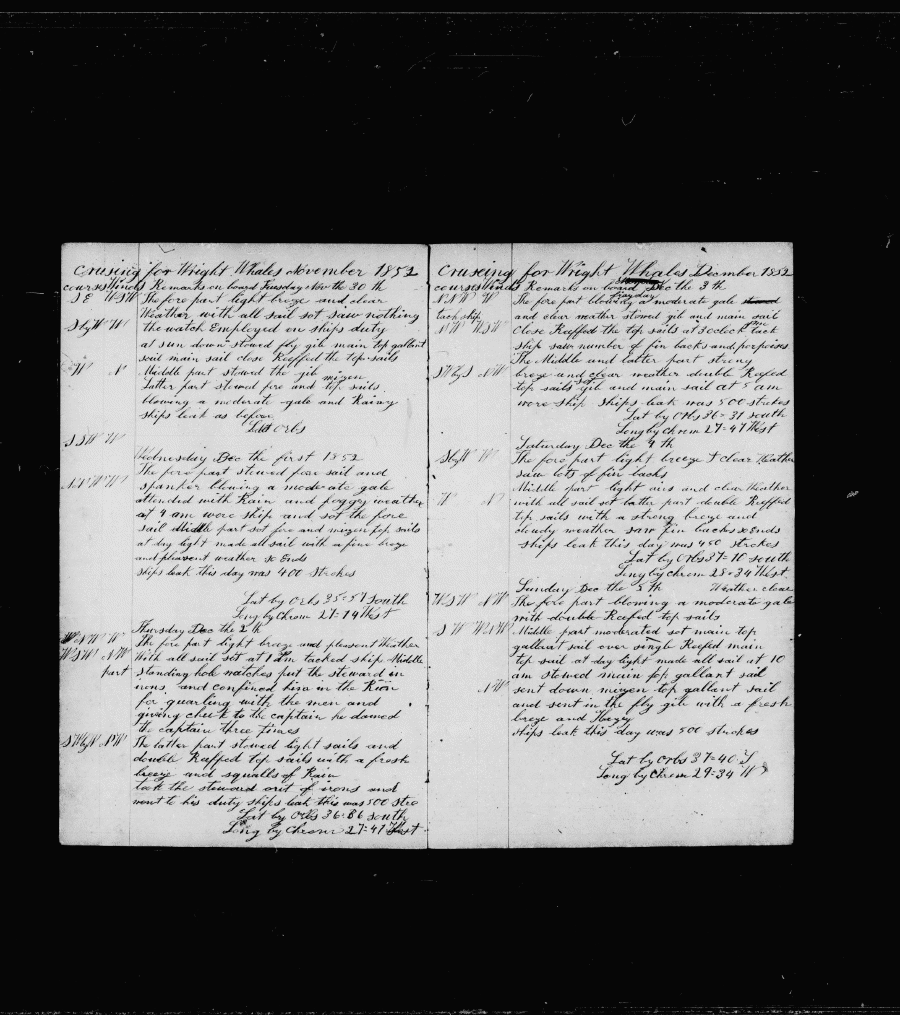 Cruising for Wright Whales November 1852
courses Winds Remarks on board Tuesday Nov the 30 th
S E WSW The fore part light breze and clear
Weather with all sail sot saw nothing
S by W W the watch Employed on ships duty
at sun down stowed fly gib main top gallant
sail main sail close Reeffed the top sails
W N Middle part stowed the gib
Latter part stowed fore and mizen top sails
blowing a moderate gale and Rainy
ships leak as before
Latt Orbs
S S W W
Wednesday Dec the first 1852
The fore part stowed fore sail and
N N W W spanker blowing a moderate gale
attended with Rain and foggy weather
at 4 am wore ship and sot the fore
sail Middle part sot fore and mizen top sails
at day light made all sail with a fine breze
and plesent weather So Ends
ships leak this day was 400 strokes
Lat by Orbs 35=57 South
Long by Chrom 27=14 West
Thursday Dec the 2 th
W N W W The fore part light breze and plesent Weather
W S W N W With all sail sot at 1 am tacked ship Middle
part standing hole watches put the steward in
irons and confined him in the Run
for quarling with the men and
giving cheek to the captain he damed
the captain three times
S W by W N W The latter part stowed light sails and
double Reeffed top sails with a fresh
breeze and squalls of Rain
took the steward out of irons and
went to his duty ships leak this was 500 stro
Lat by Orbs 36=86 South
Long by Chrom 27=47 West
Cruseing for Wright Whales December 1852
courses Winds Remarks on board Dec the 3 th
Frayday
N N W W The fore part blowing a moderate gale
tack ship and clear weather stowed gib and main sail
N W W S W close Reeffed the top sails at 3 oclock tack
ship saw number of fin backs and porpoises
The Middle and latter part strong
S W by S N W breze and clear weather double Reefed
top sails sot gib and main sail at 5 am
wore ship ships leak was 500 strokes
Lat by Orbs 36=31 South
Long by Chrom 27=47 West
Saturday Dec the 4 th
S by W W The fore part light breeze & clear Weather
saw lots of fin backs
Middle part light airs and clear Weather
W N with all sail sot latter part double Reeffed
top sails with a strong breze and
cloudy weather saw fin backs so Ends
ships leak this day was 450 strokes
Lat by Orbs 37=10 South
Long by Chrom 28=34 West
Sunday Dec the 5 th Weather clear
W S W N W The fore part blowing a moderate gale
with double Reefed top sails
S W W N W Middle part moderated sot main top
gallant sail over single Reefed main
top sail at day light made all sail at 10
am stowed main top gallant sail
N W sent down mizen top gallant sail
and sent in the fly gib with a fresh
breze and Hazy
ships leak this day was 500 strokes
Lat by Orbs 37=40 S
Long by Chrom 29=34 W